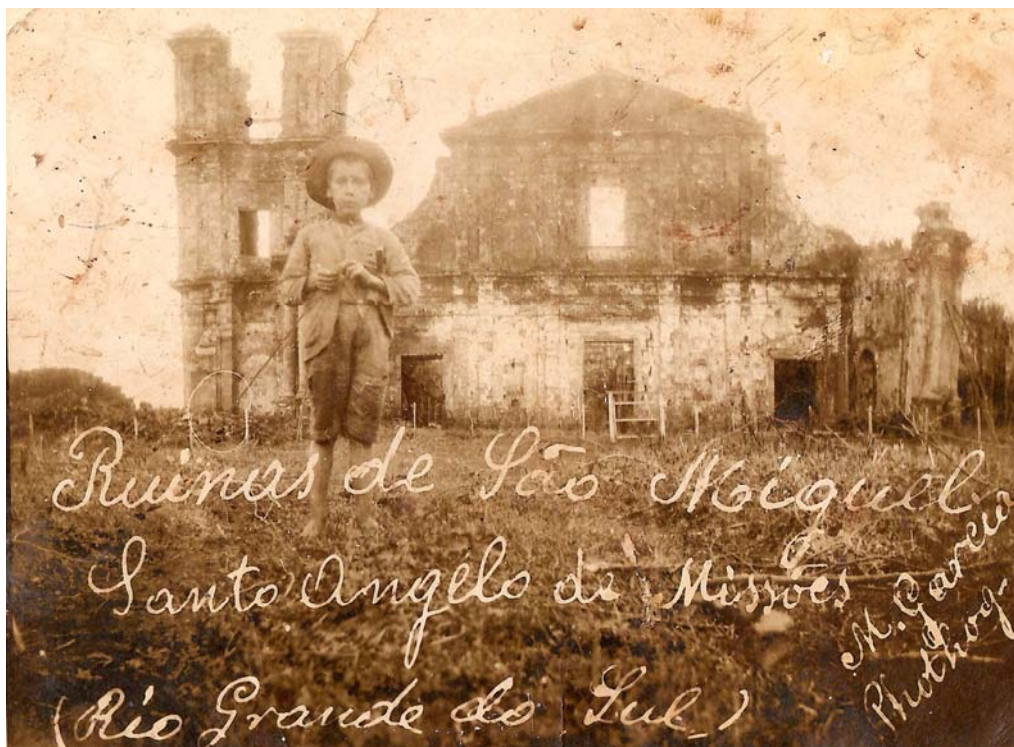 Ruinas de São Miguel
Santo Angelo de Missões
(Rio Grande do Sul)
M. Garcia
Photog.